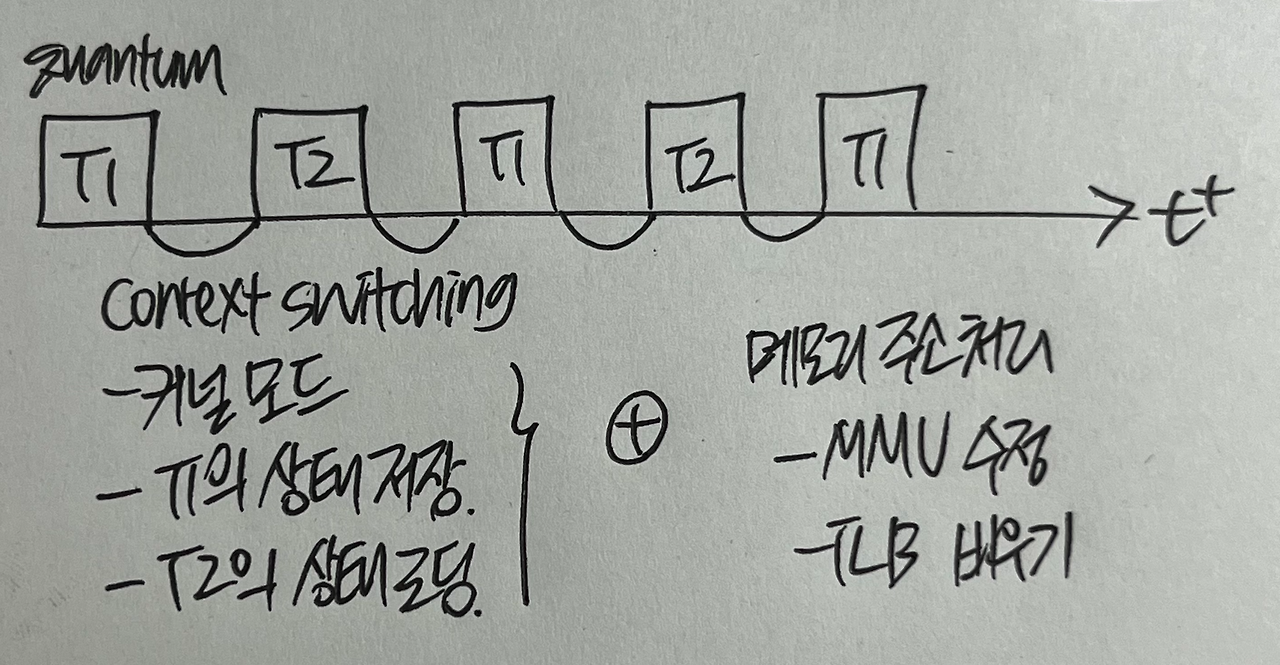 quantum
T1 T2 T1 T2 T1
t+
Context switching
-커널 모드
- T1의 상태 저장.
- T2의 상태 로딩.
+
메모리 주소 처리
- MMU 수정
- TLB 비우기